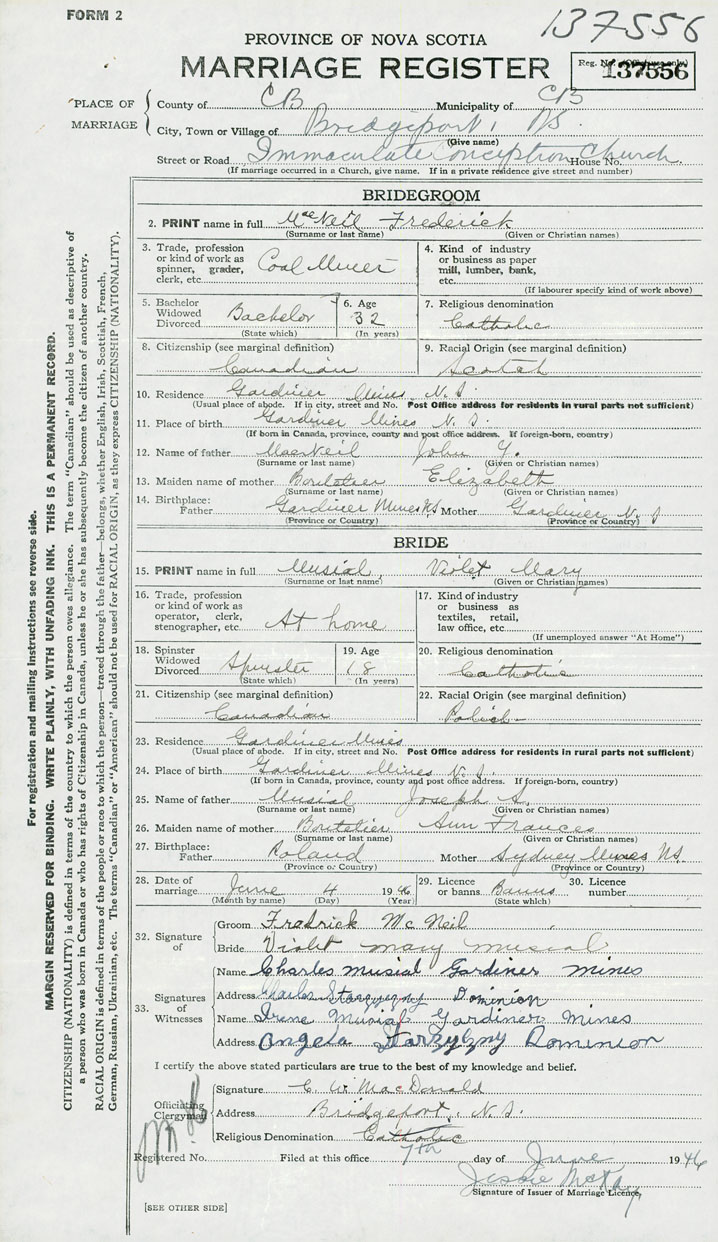 FORM 2
137556
PROVINCE OF NOVA SCOTIA
MARRIAGE REGISTER
Reg. No. (Office use only)
137556
PLACE OF MARRIAGE
County of CB Municipality of CB
City, Town or Village of Bridgeport, NS.
(Give name)
Street or Road Immaculate Conception Church House No.
(If marriage occurred in a Church, give name. If in a private residence give street and number)
BRIDEGROOM
2. PRINT name in full MacNeil Frederick
(Surname or last name) (Given or Christian names)
3. Trade, profession or kind of work as spinner, grader, clerk, etc. Coal Miner
4. Kind of industry or business as paper mill, lumber, bank, etc.
(If labourer specify kind of work above)
5. Bachelor Widowed Divorced Bachelor (State which)
6. Age 32 (In years)
7. Religious denomination Catholic
8. Citizenship (see marginal definition) Canadian
9. Racial Origin (see marginal definition) Scotch
10. Residence Gardiner Mines N.S.
(Usual place of abode. If in city, street and No. Post Office address for residents in rural parts not sufficient)
11. Place of birth Gardiner Mines N.S.
(If born in Canada, province, county and post office address. If foreign-born, country)
12. Name of father MacNeil John Y.
(Surname or last name) (Given or Christian names)
13. Maiden name of mother Elizabeth
(Surname or last name) (Given or Christian names)
14. Birthplace: Father Gardiner Mines NS Mother Gardiner N.S
(Province or Country) (Province or Country)
BRIDE
15. PRINT name in full Musial, Violet Mary
(Surname or last name) (Given or Christian names)
16. Trade, profession or kind of work as operator, clerk, stenographer, etc. At home
17. Kind of industry or business as textiles, retail, law office, etc.
(If unemployed answer "At Home")
18. Spinster Widowed Divorced Spinster (State which)
19. Age 18 (In years)
20. Religious denomination Catholic
21. Citizenship (see marginal definition) Canadian
22. Racial Origin (see marginal definition) Polish
23. Residence Gardiner Mines
(Usual place of abode. If in city, street and No. Post Office address for residents in rural parts not sufficient)
24. Place of birth Gardiner Mines N.S.
(If born in Canada, province, county and post office address. If foreign-born, country)
25. Name of father Musial Joseph S.
(Surname or last name) (Given or Christian names)
26. Maiden name of mother Boutelier Ann Frances
(Surname or last name) (Given or Christian names)
27. Birthplace: Father Poland Mother Sydney Mines NS.
(Province or Country) (Province or Country)
28. Date of marriage June 4 1946
(Month by name) (Day) (Year)
29. Licence or banns Banns (State which)
30. Licence number
32. Signature of
Groom Fradrick McNeil
Bride Violet mary musial
33. Signatures of Witnesses
Name Charles musial Gardiner mines
Address Charles Dominion
Name Irene Musial Gardiner Mines
Address Angela Starzyzny Dominion
I certify the above stated particulars are true to the best of my knowledge and belief.
Officiating Clergyman
Signature C. W. MacDonald
Address Bridgeport, N.S.
Religious Denomination Catholic
Registered No. Filed at this office 7th day of June 1946
Jessie McKay
Signature of Issuer of Marriage Licence
[SEE OTHER SIDE]
For registration and mailing instructions see reverse side.
MARGIN RESERVED FOR BINDING. WRITE PLAINLY, WITH UNFADING INK. THIS IS A PERMANENT RECORD.
CITIZENSHIP (NATIONALITY) is defined in terms of the country to which the person owes allegiance. The term "Canadian" should be used as descriptive of
a person who was born in Canada or who has rights of Citizenship in Canada, unless he or she has subsequently become the citizen of another country.
RACIAL ORIGIN is defined in terms of the people or race to which the person—traced through the father—belongs, whether English, Irish, Scottish, French,
German, Russian, Ukrainian, etc. The terms "Canadian" or "American" should not be used for RACIAL ORIGIN, as they express CITIZENSHIP (NATIONALITY).